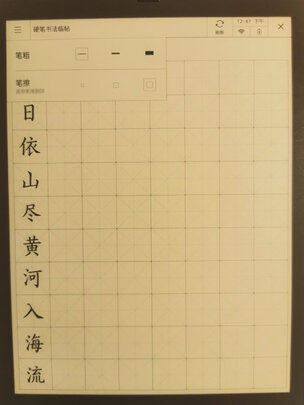 硬笔书法临帖
刷新
12:47 下午
笔粗
笔擦
日
依
山
尽
黄
河
入
海
流